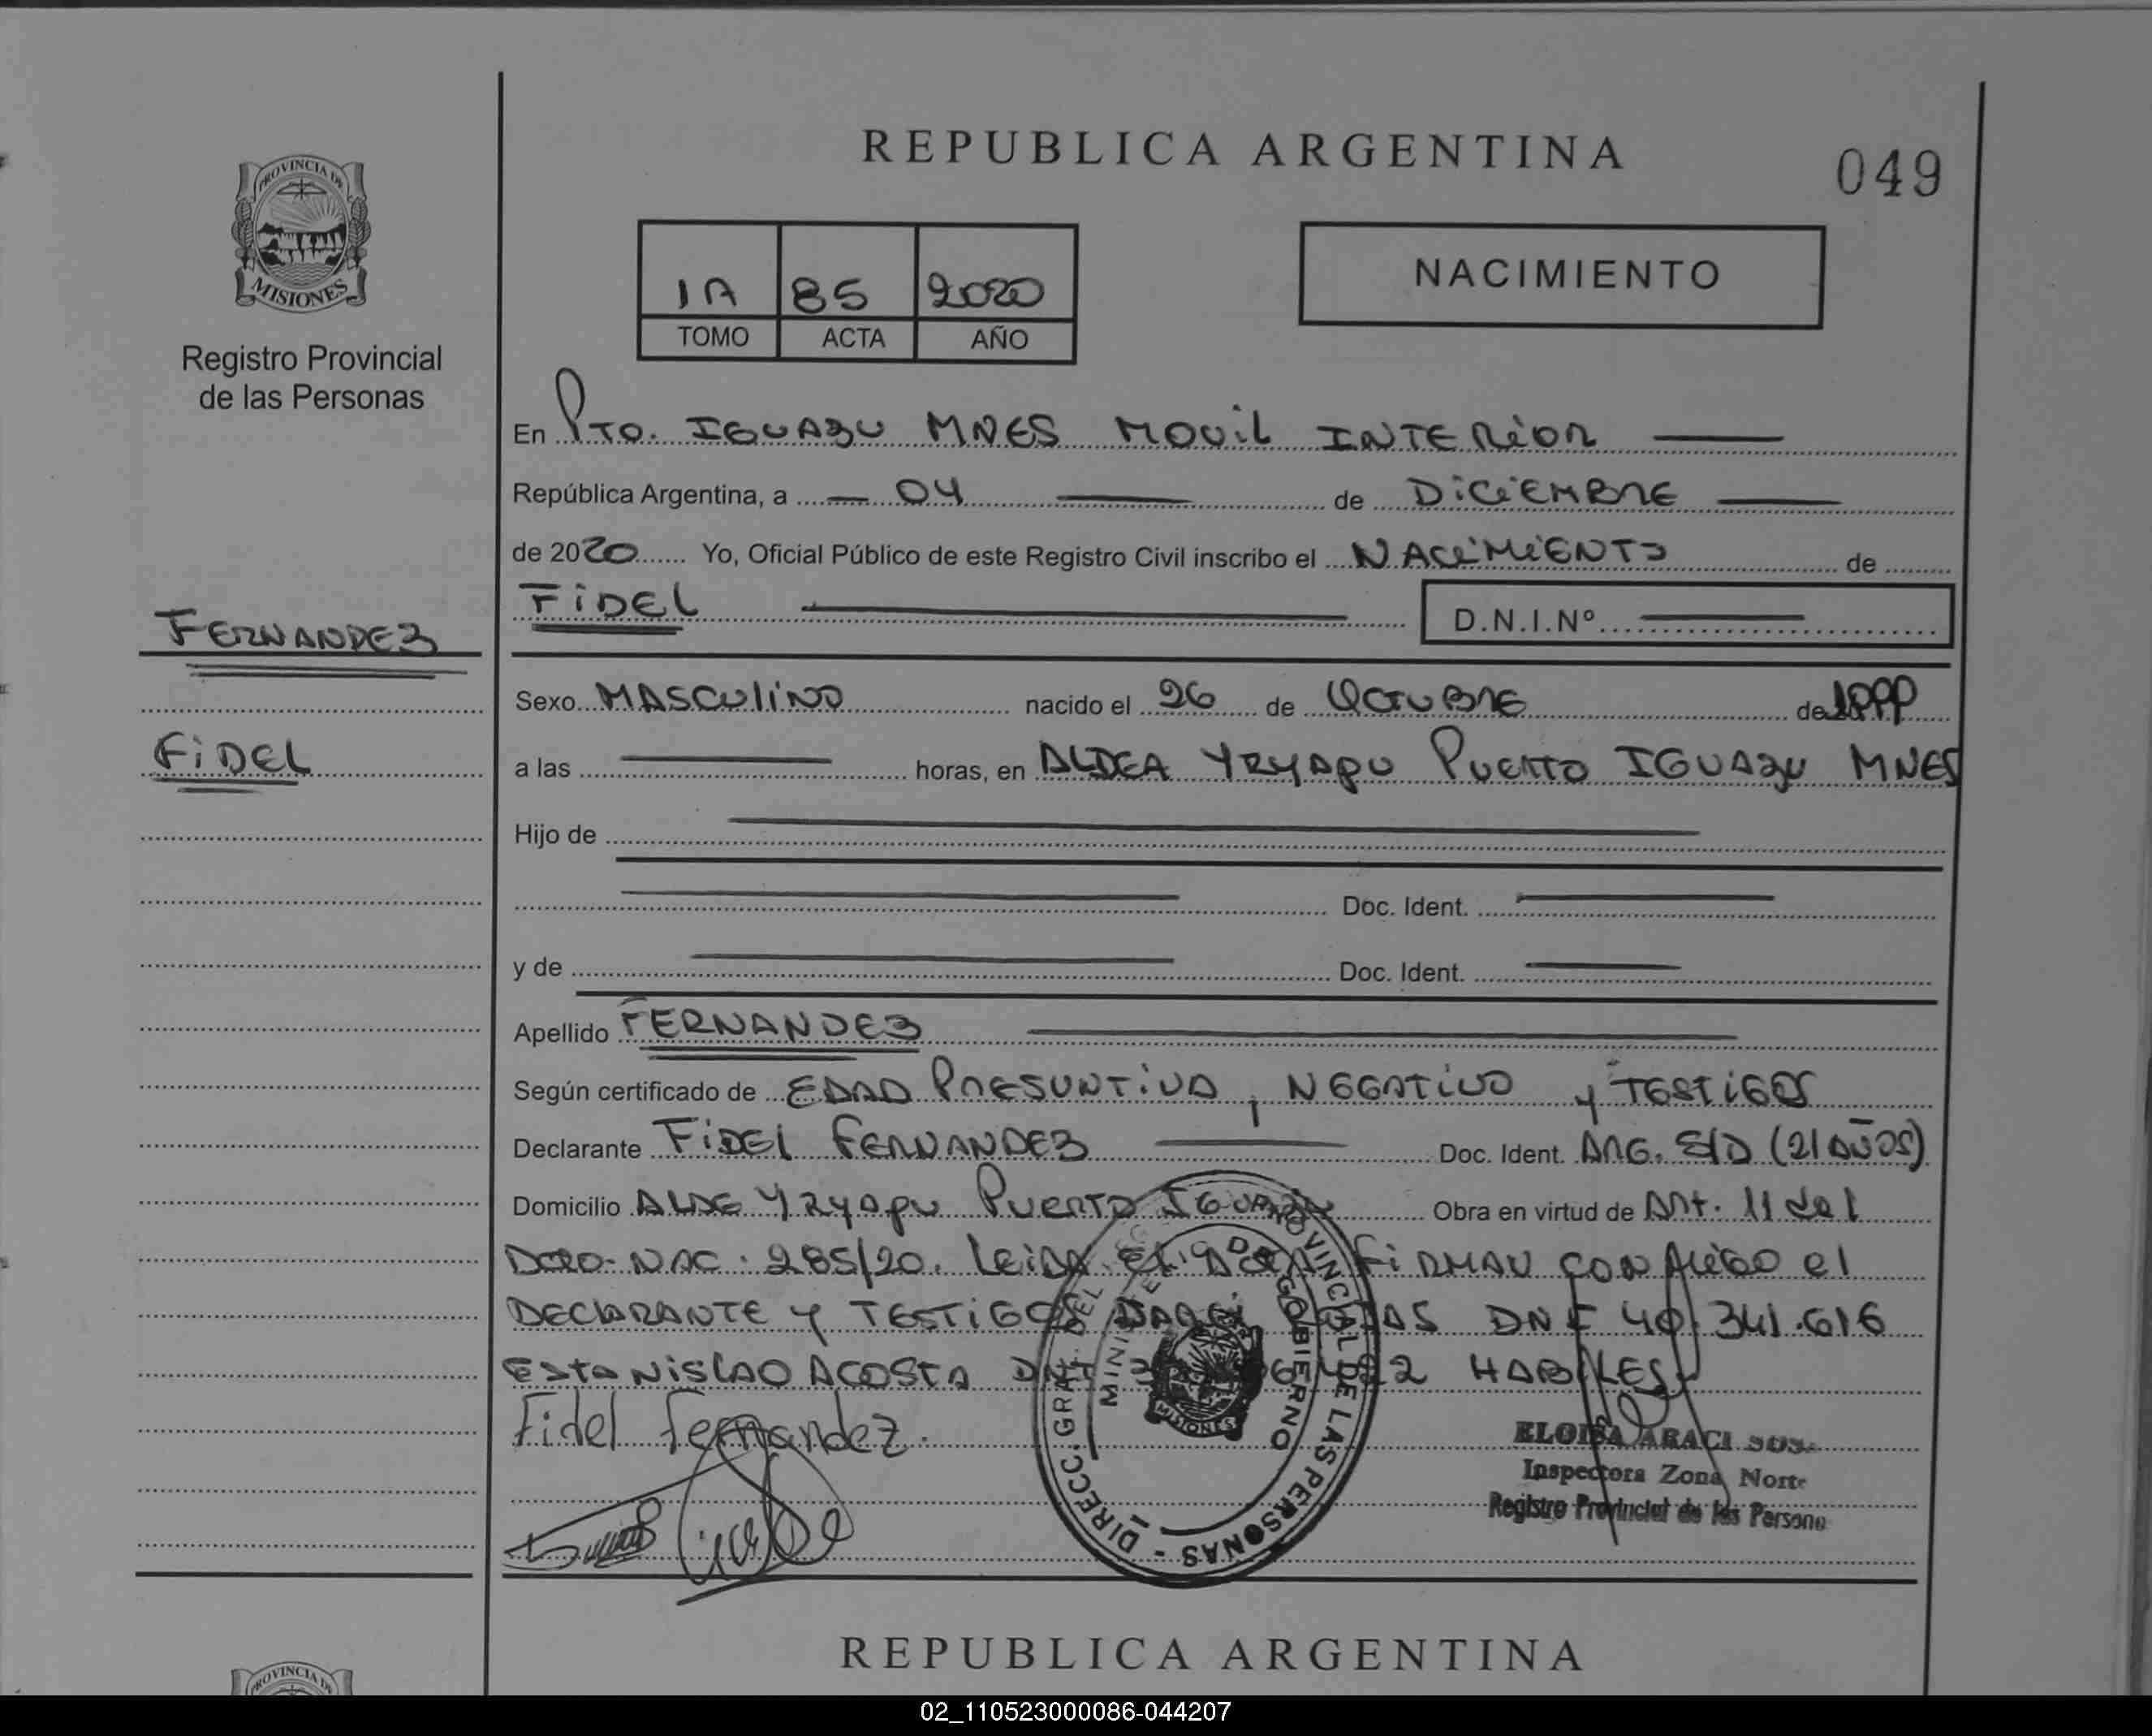 REPUBLICA ARGENTINA
049
PROVINCIA DE
MISIONES
Registro Provincial
de las Personas
1A 85 2020
TOMO ACTA AÑO
NACIMIENTO
En Pto. IGUAZU MNES MOVIL INTERIOR
República Argentina, a 04 de DICIEMBRE
de 2020 Yo, Oficial Público de este Registro Civil inscribo el NACIMIENTO de
FIDEL D.N.I.Nº
FERNANDEZ
FIDEL
Sexo MASCULINO nacido el 26 de OCTUBRE de 1999
a las horas, en ALDEA YRYAPU PUERTO IGUAZU MNES
Hijo de
Doc. Ident.
y de Doc. Ident.
Apellido FERNANDEZ
Según certificado de EDAD PRESUNTIVA, NEGATIVO y TESTIGOS
Declarante FIDEL FERNANDEZ Doc. Ident. ARG. S/D (21 AÑOS)
Domicilio ALDE YRYAPU PUERTO IGUAZU Obra en virtud de Art. 11 del
DCRO. NAC. 285/20. LEIDA EL ACTA FIRMAN CONMIGO el
DECLARANTE y TESTIGOS DNI 40.341.616
ESTANISLAO ACOSTA DNI HABILES
Fidel Fernandez.
DIRECC. GRAL. DEL REG. PROVINCIAL DE LAS PERSONAS -
MINISTERIO DE GOBIERNO
MISIONES
ELOISA ARACI SOSA
Inspectora Zona Norte
Registro Provincial de las Persona
REPUBLICA ARGENTINA
PROVINCIA DE
02_110523000086-044207